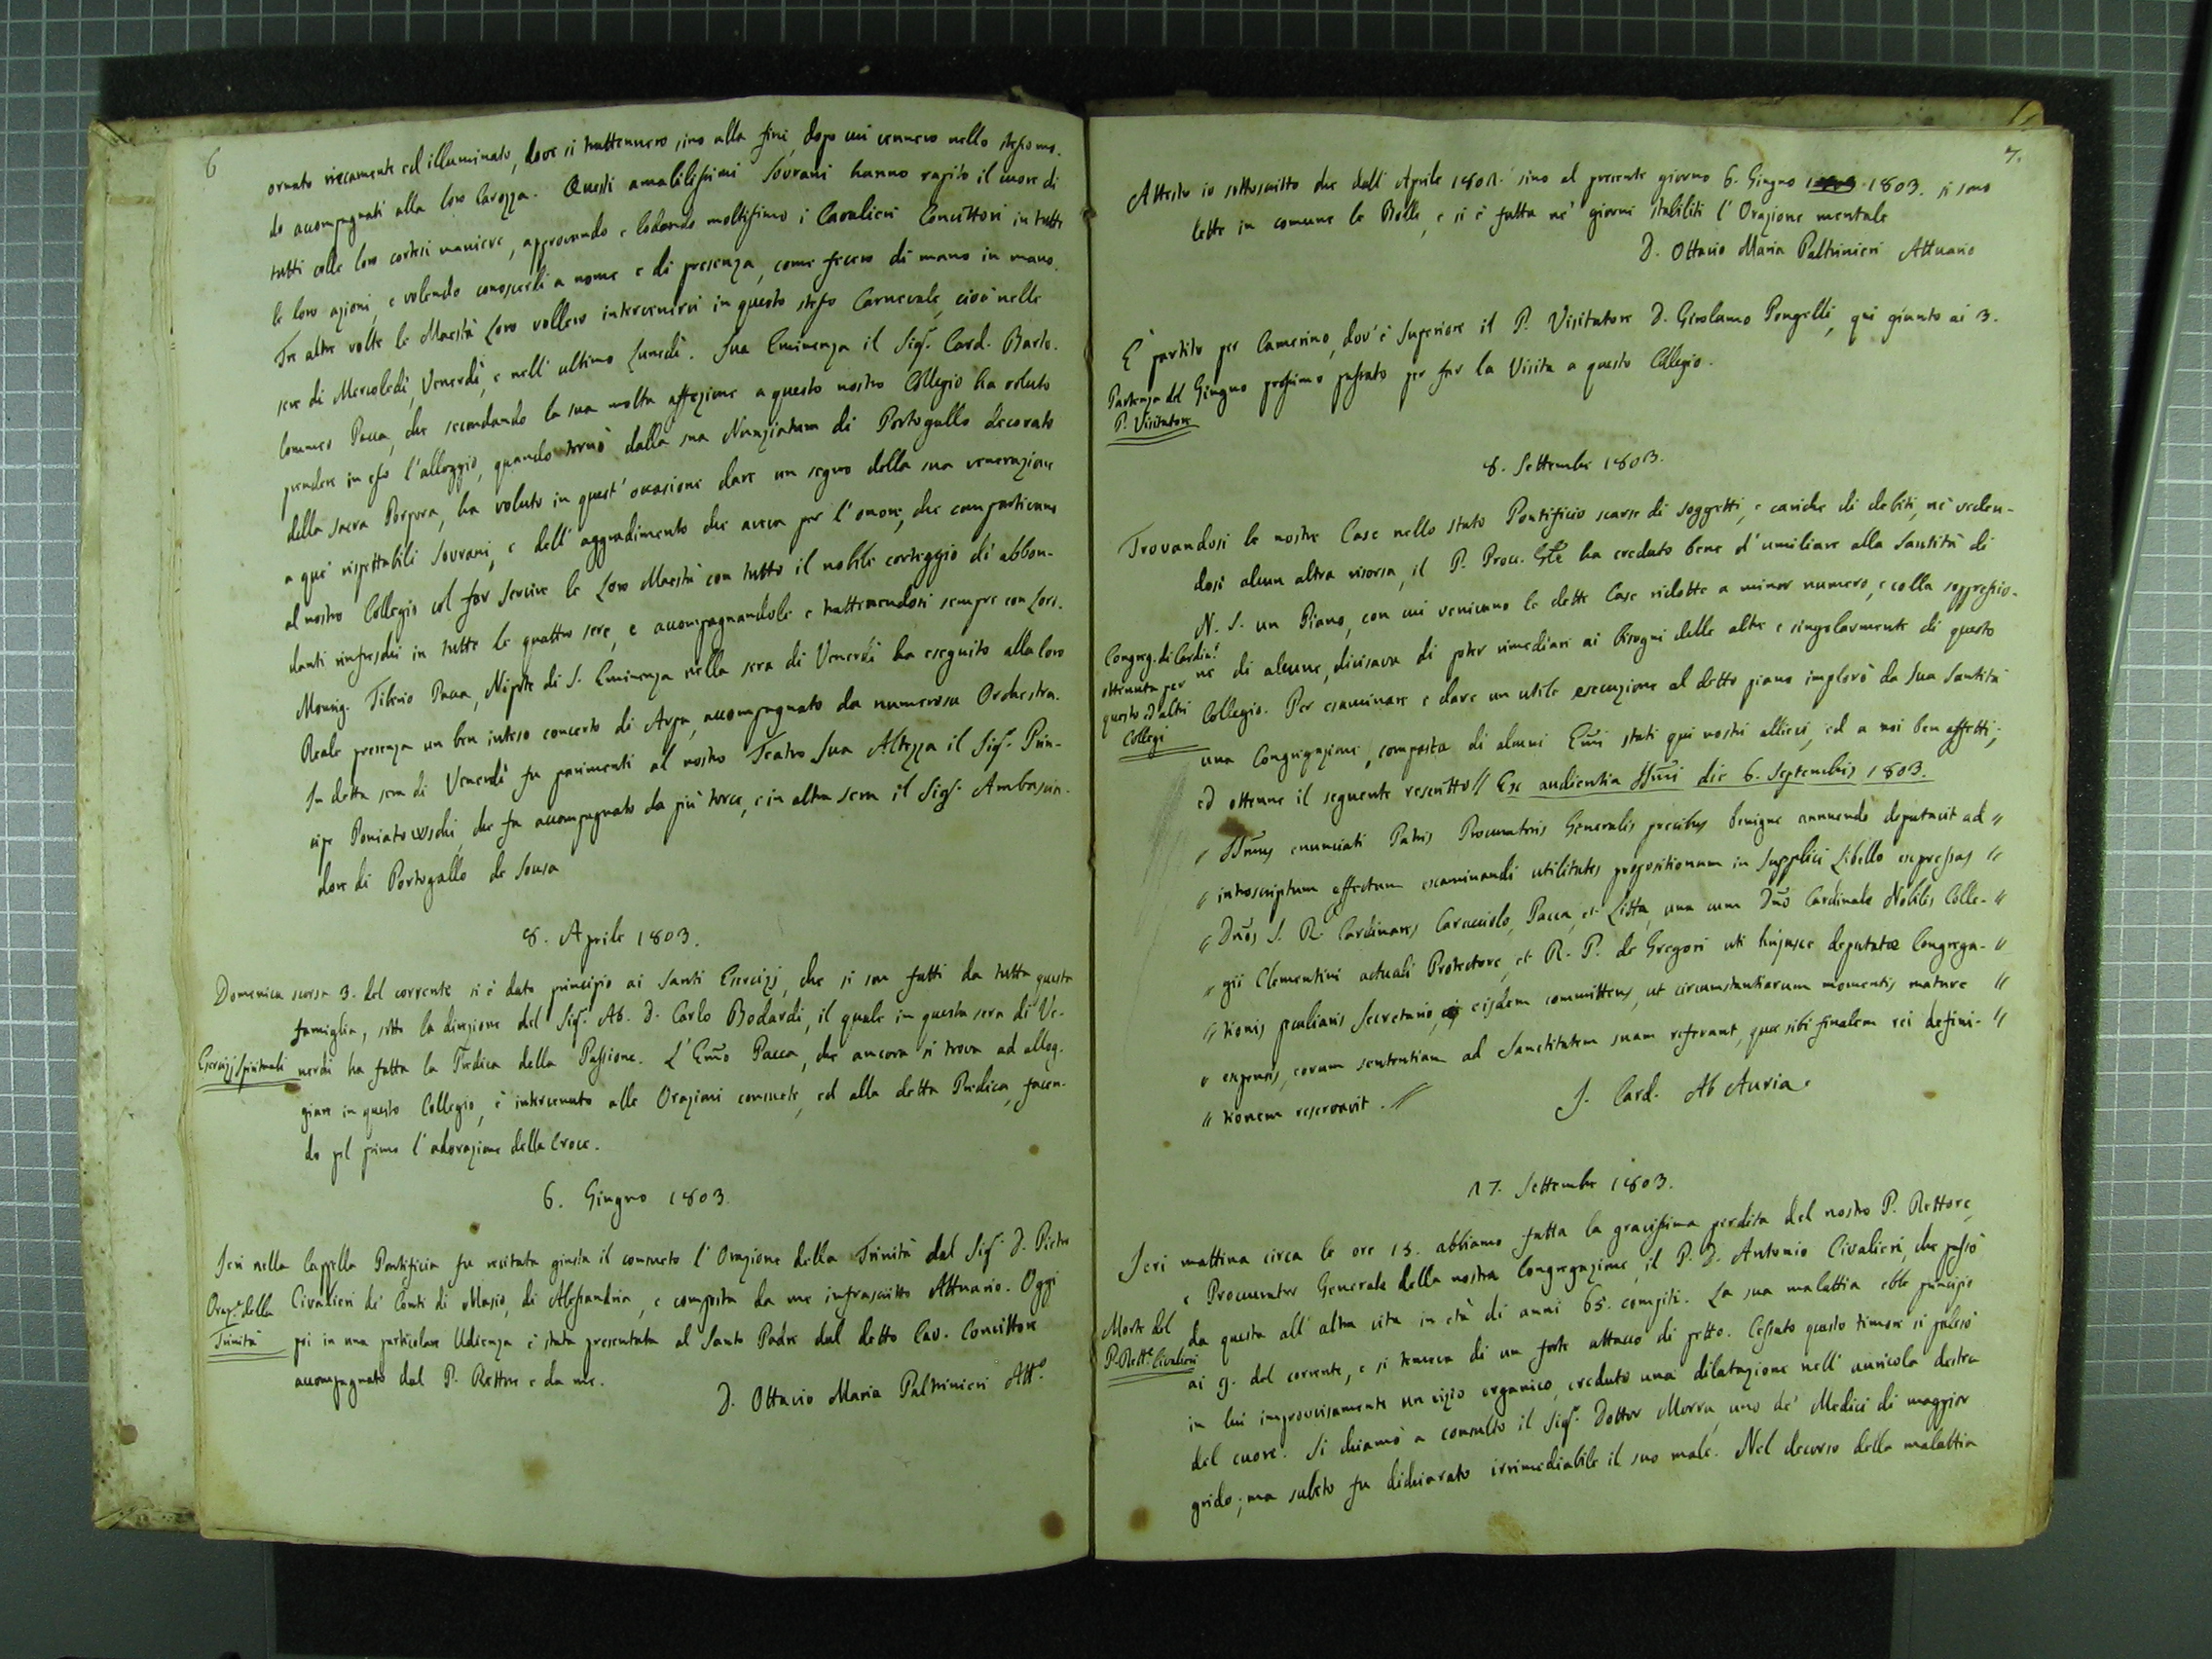 6
ornato riccamente ed illuminato, dove si trattennero sino alla fine, dopo cui vennero nello stesso mo-
do accompagnati alla loro Carozza. Questi amabilissimi Sovrani hanno rapito il cuore di
tutti colle loro cortesi maniere, approvando e lodando moltissimo i Cavalieri Convittori in tutte
le loro azioni, e volendo conoscerli a nome e di presenza, come fecero di mano in mano.
Tre altre volte le Maestà Loro vollero intervenirvi in questo stesso Carnevale, cioè nelle
sere di Mercoledì, Venerdì, e nell' ultimo Lunedì. Sua Eminenza il Sig.r Card. Barto-
lommeo Pacca, che secondando la sua molta affezione a questo nostro Collegio ha voluto
prendere in esso l'alloggio, quando tornò dalla sua Nunziatura di Portogallo decorato
della sacra Porpora, ha voluto in quest' occasione dare un segno della sua venerazione
a que' rispettabili Sovrani, e dell' aggradimento che aveva per l'onore, che compartivano
al nostro Collegio col far servire le Loro Maestà con tutto il nobile corteggio di abbon-
danti rinfreschi in tutte le quattro sere, e accompagnandole e trattenendosi sempre con Loro.
Monsig. Tiberio Pacca, Nipote di S. Eminenza nella sera di Venerdì ha eseguito alla loro
Reale presenza un ben inteso concerto di Arpa, accompagnato da numerosa Orchestra.
In detta sera di Venerdì fu parimenti al nostro Teatro Sua Altezza il Sig.r Prin-
cipe Poniatowschi, che fu accompagnato da più torce, e in altra sera il Sig.r Ambascia-
dore di Portogallo de Sousa
8. Aprile 1803.
Domenica scorsa 3. del corrente si è dato principio ai Santi Esercizj, che si son fatti da tutta questa
famiglia, sotto la direzione del Sig.r Ab. D. Carlo Bodardi, il quale in questa sera di Ve-
Esercizj Spirituali
nerdì ha fatta la Predica della Passione. L'Emo Pacca, che ancora si trova ad allog-
giare in questo Collegio, è intervenuto alle Orazioni consuete, ed alla detta Predica, facen-
do pel primo l'adorazione della Croce.
6. Giugno 1803.
Jeri nella Cappella Pontificia fu recitata giusta il consueto l'Orazione della Trinità dal Sig.r D. Pietro
Oraz.e della
Trinità
Civalieri de' Conti di Masio, di Alessandria, e composta da me infrascritto Attuario. Oggi
poi in una particolare Udienza è stata presentata al Santo Padre dal detto Cav. Convittore
accompagnato dal P. Rettore e da me.
D. Ottavio Maria Paltrinieri Att.o
7.
Attesto io sottoscritto che dall' Aprile 1802. sino al presente giorno 6. Giugno 1803. si sono
lette in comune le Bolle, e si è fatta ne' giorni stabiliti l'Orazione mentale
D. Ottavio Maria Paltrinieri Attuario
È partito per Camerino, dov'è Superiore il P. Visitatore D. Girolamo Pongelli, qui giunto ai 3.
Partenza del
P. Visitatore
Giugno prossimo passato per far la Visita a questo Collegio.
8. Settembre 1803.
Trovandosi le nostre Case nello stato Pontificio scarse di soggetti, e cariche di debiti, nè veden-
dosi alcun altra risorsa, il P. Proc. Gle ha creduto bene d'umiliare alla Santità di
N. S. un Piano, con cui venivano le dette Case ridotte a minor numero, e colla soppressio-
Congreg. di Cardin.i
ottenuta per
questo ed altri
Collegi
ne di alcune, divisava di poter rimediare ai bisogni delle altre e singolarmente di questo
Collegio. Per esaminare e dare un utile esecuzione al detto piano implorò da Sua Santità
una Congregazione, composta di alcuni Emi stati qui nostri allievi, ed a noi ben affetti;
ed ottenne il seguente rescritto // Ex audientia SSmi die 6. Septembris 1803.
" SSmus enunciati Patris Procuratoris Generalis precibus benigne annuendo deputavit ad "
" introscriptum effectum examinandi utilitates propositionum in supplici Libello expressas "
" Dnos S. R. Cardinales Caracciolo, Pacca, et Litta, una cum Dno Cardinale Nobilis Colle- "
" gii Clementini actuali Protectore, et R. P. de Gregori uti hujusce deputatæ Congrega- "
" tionis peculiaris Secretario, eisdem committens, ut circumstantiarum momentis mature "
" expensis, eorum sententiam ad Sanctitatem suam referant, quæ sibi finalem rei defini- "
" tionem reservavit. //
J. Card. Ab Auria.
17. Settembre 1803.
Jeri mattina circa le ore 13. abbiamo fatta la gravissima perdita del nostro P. Rettore,
e Procurator Generale della nostra Congregazione, il P. D. Antonio Civalieri, che passò
Morte del
P. Rett.e Civalieri
da questa all' altra vita in età di anni 65. compiti. La sua malattia ebbe principio
ai 9. del corrente, e si temeva di un forte attacco di petto. Cessato questo timore si palesò
in lui improvvisamente un vizio organico, creduto una dilatazione nell' auricola destra
del cuore. Si chiamò a consulto il Sig.r Dottor Morra, uno de' Medici di maggior
grido; ma subito fu dichiarato irrimediabile il suo male. Nel decorso della malattia